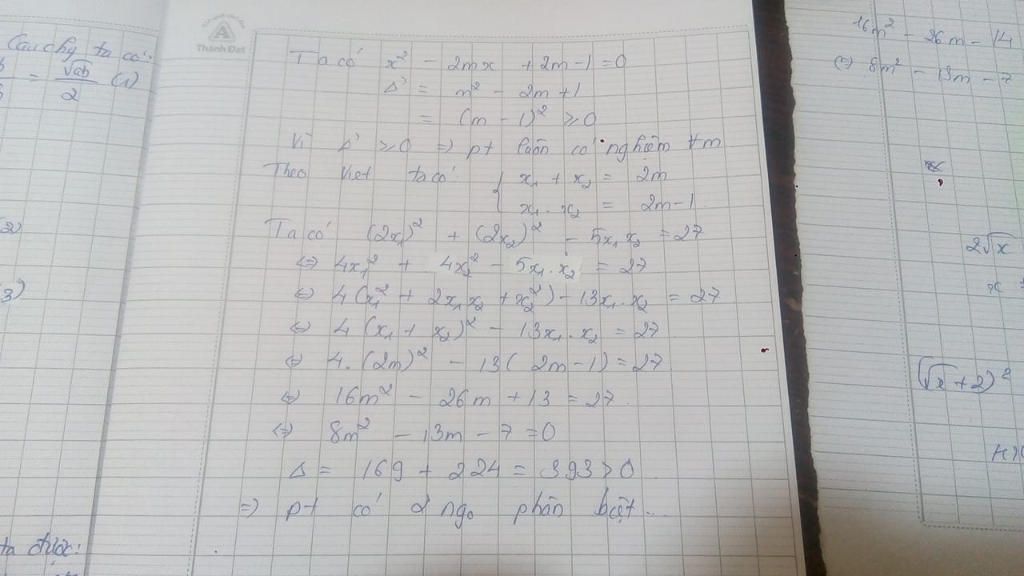 Cauchy ta có:
= √ab / 2 (1)
3)
ta được:
Thành Đạt
Ta có x² - 2mx + 2m-1 = 0
Δ' = m² - 2m + 1
= (m - 1)² ≥ 0
Vì Δ' ≥ 0 => pt luôn có nghiệm ∀m
Theo Viet ta có: { x₁ + x₂ = 2m
x₁ . x₂ = 2m-1
Ta có (2x₁)² + (2x₂)² - 5x₁x₂ = 27
⇔ 4x₁² + 4x₂² - 5x₁.x₂ = 27
⇔ 4(x₁² + 2x₁x₂ + x₂²) - 13x₁.x₂ = 27
⇔ 4(x₁ + x₂)² - 13x₁.x₂ = 27
⇔ 4.(2m)² - 13(2m-1) = 27
⇔ 16m² - 26m + 13 = 27
⇔ 8m² - 13m - 7 = 0
Δ = 169 + 224 = 393 > 0
=> pt có 2 ngo phân biệt...
16m² - 26m - 14
⇔ 8m² - 13m - 7
2√x
(√x + 2)²